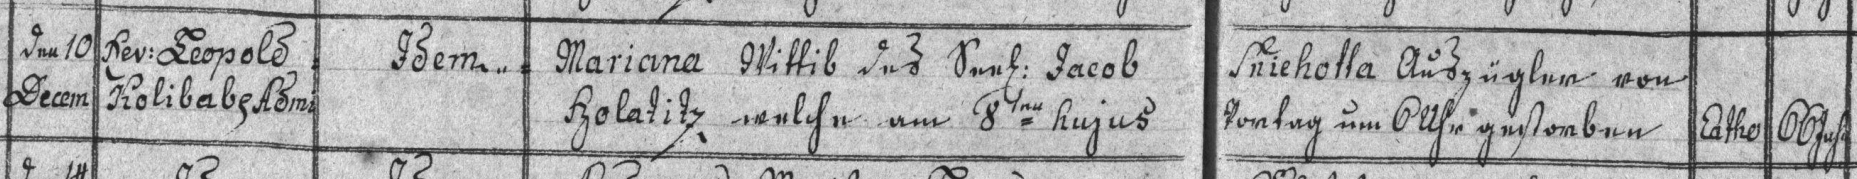 den 10 Rev: Leopold Idem Mariana Wittib des Seel: Jacob Sniehotta Auszügler von
Decem Kolibabe Admi Holatitz welche am 8ten hujus Vortag um 6 Uhr gestorben Catho 66 Jahr